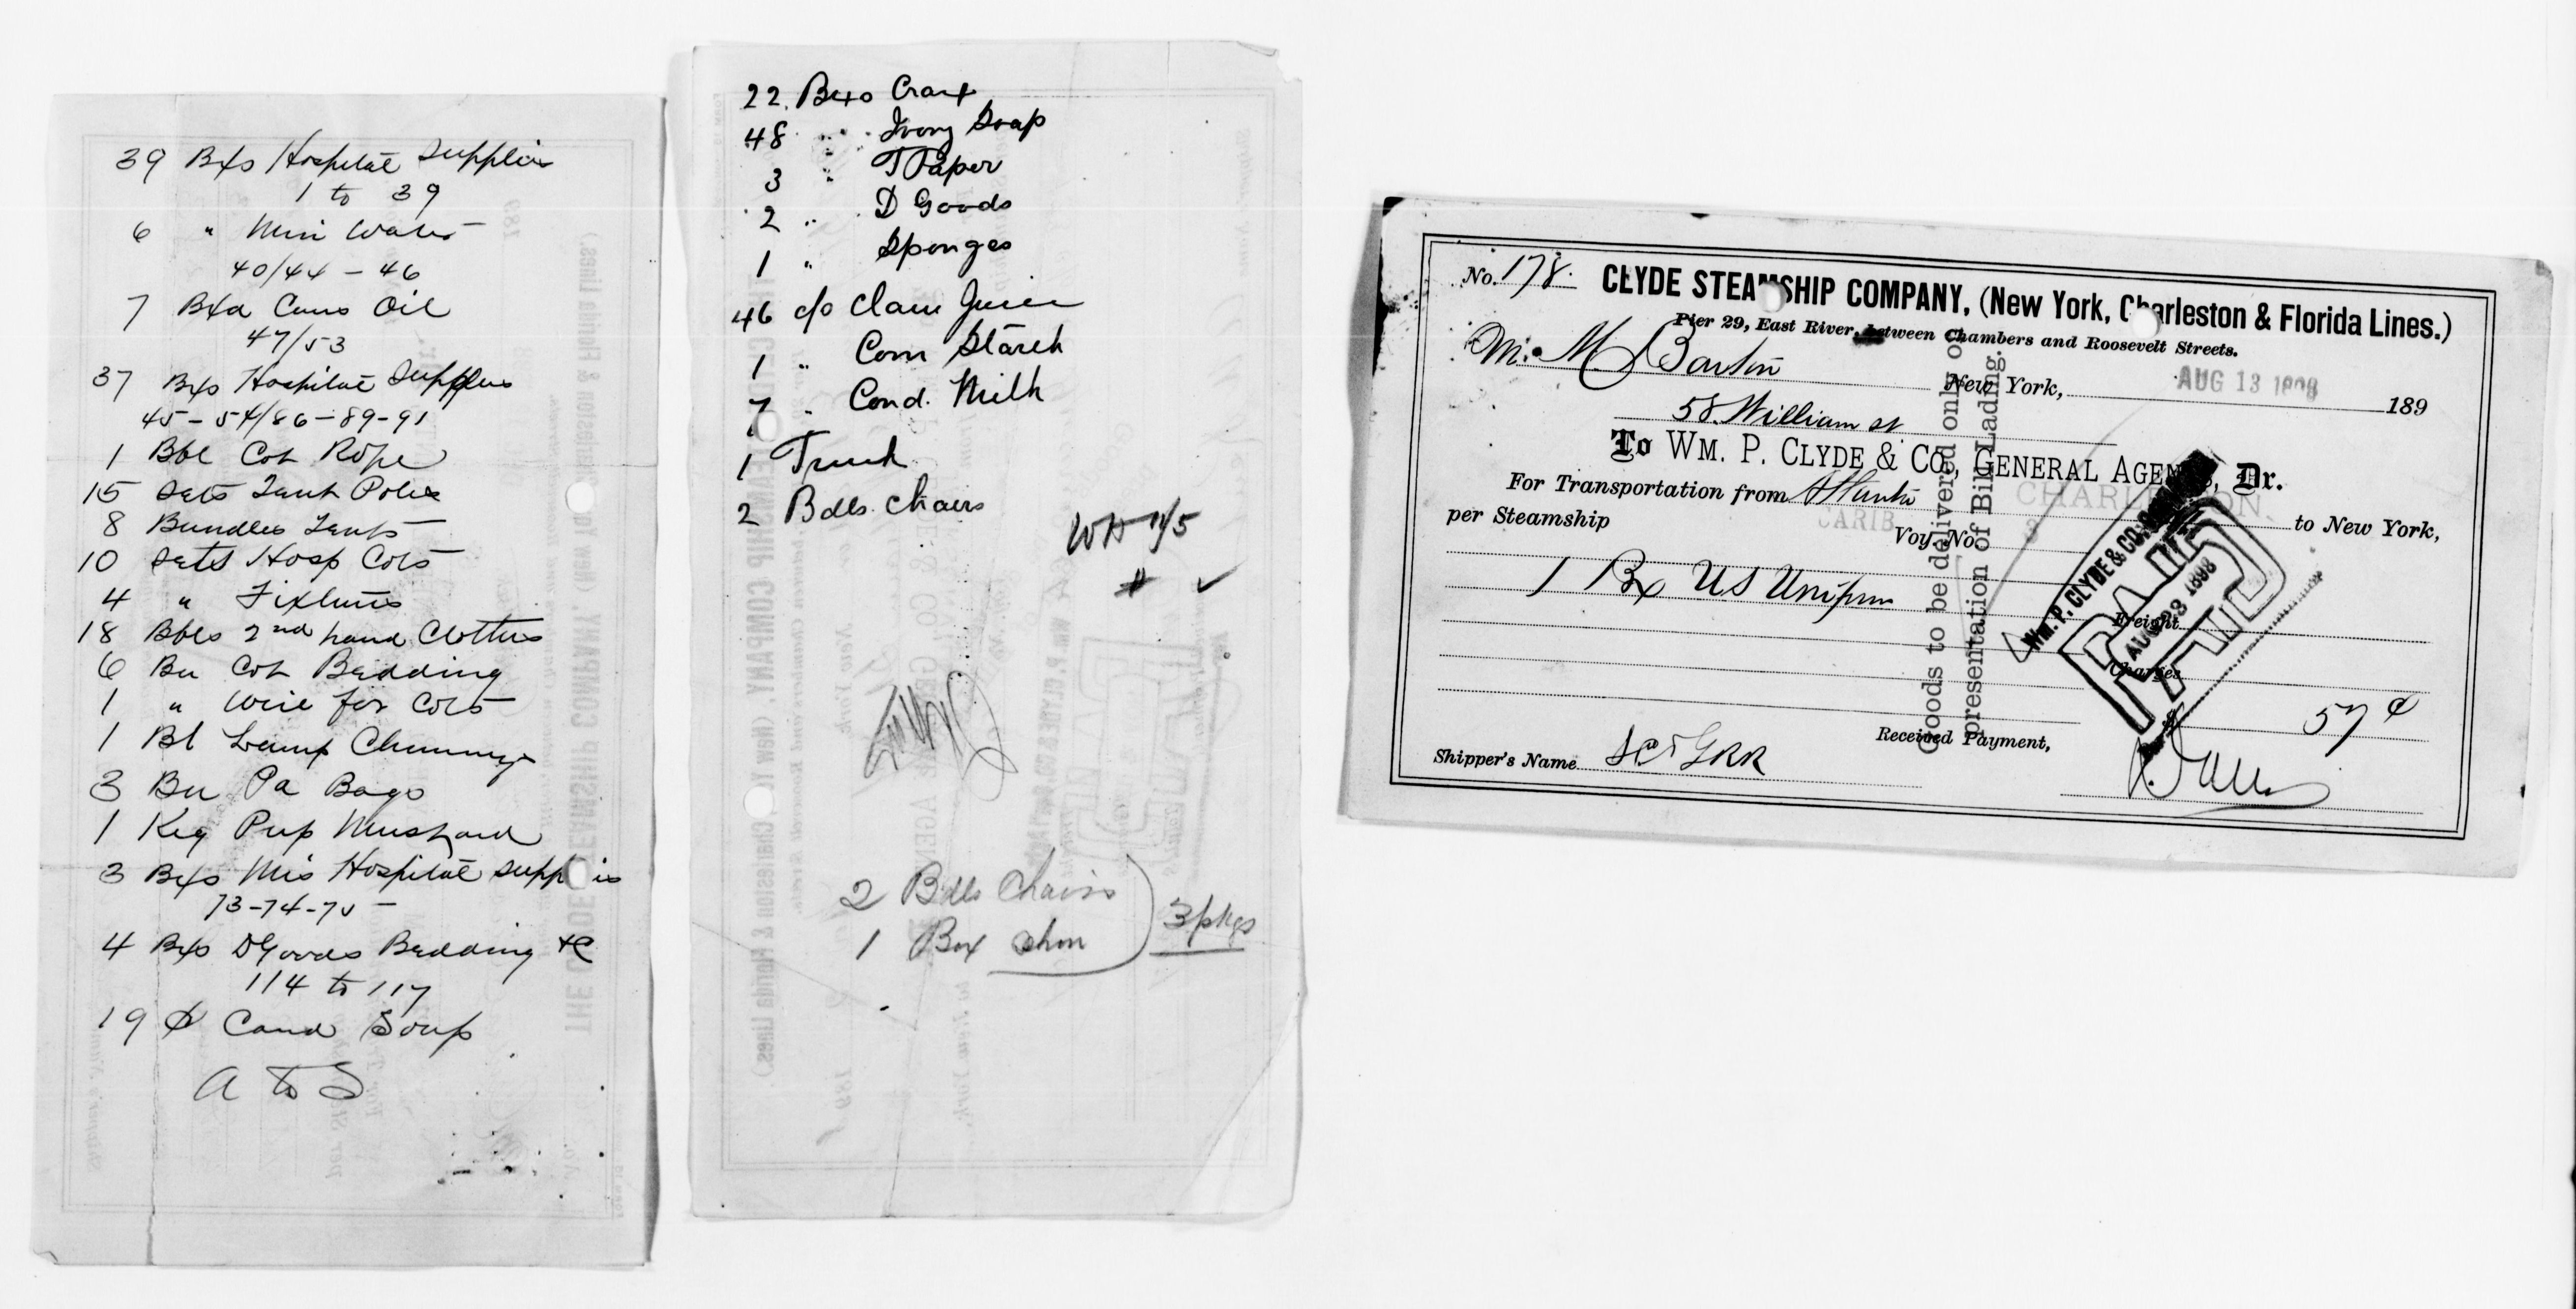 39 Bxs Hospital Supplies
1 to 39
6 " Min Water
40/44 - 46
7 Bxs Oil
47/53
37 Bxs Hospital Supplies
45-54/86-89-91
1 Bbl Cot Rope
15 Sets Tent Poles
8 Bundles Tents
10 Sets Hosp Cots
4 " Fixtures
18 Bbls 2nd hand Clothes
6 Bu Cot Bedding
1 " Wire for Cots
1 Bl Lamp Chimneys
3 Bu Pa Bags
1 Keg Prep Mustard
3 Bxs Mis Hospital Supplies
73-74-75-
4 Bxs D Goods Bedding &c
114 to 117
19 Soup
A to S
22. Bxs
48 " Ivory Soap
3 " T Paper
2 " D Goods
1 " Sponges
46 c/o Clam Juice
1 " Corn Starch
7 " Cond. Milk
1 Trunk
2 Bdls. Chairs
2 Bdls Chairs
1 Box
3 pkgs
No. 178.
CLYDE STEAMSHIP COMPANY, (New York, Charleston & Florida Lines.)
Pier 29, East River, between Chambers and Roosevelt Streets.
M. M Barton
New York, AUG 13 1898 189
58 William St
To WM. P. CLYDE & CO., GENERAL AGENTS, Dr.
For Transportation from Atlanta CHARLESTON to New York,
per Steamship CARIB Voy. No. 3
1 Bx US Uniform
Freight
Charges
$ 57¢
Received Payment,
Shipper's Name
Goods to be delivered only on
presentation of Bill Lading.
WM. P. CLYDE & CO.
PAID
AUG 23 1898